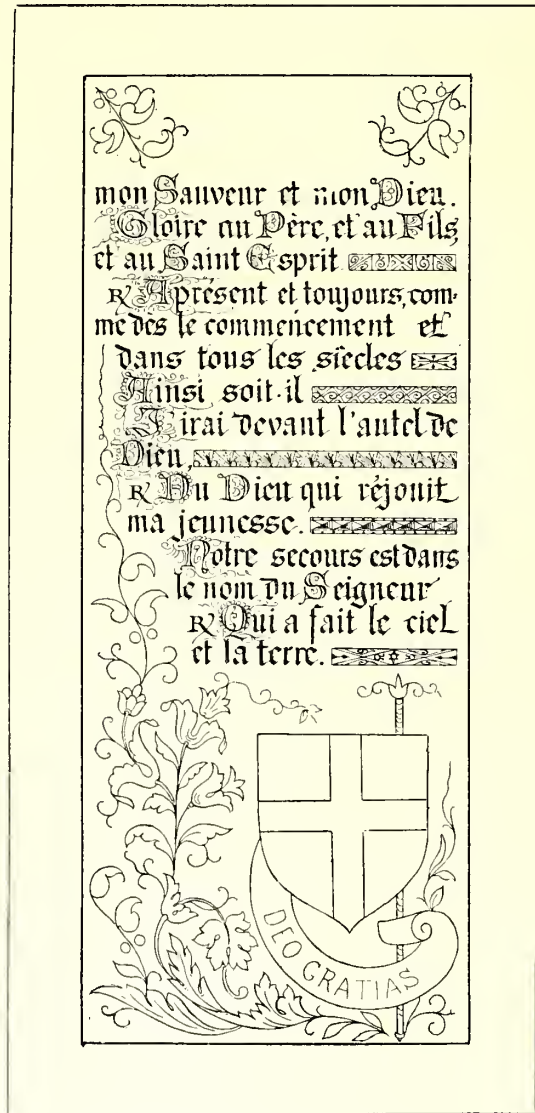 mon Sauveur et mon Dieu.
Gloire au Père, et au Fils,
et au Saint Esprit
℟ A présent et toujours, com-
me dès le commencement et
dans tous les siècles
Ainsi soit-il
J'irai devant l'autel de
Dieu,
℟ Du Dieu qui réjouit
ma jeunesse.
Notre secours est dans
le nom du Seigneur
℟ Qui a fait le ciel
et la terre.
DEO GRATIAS